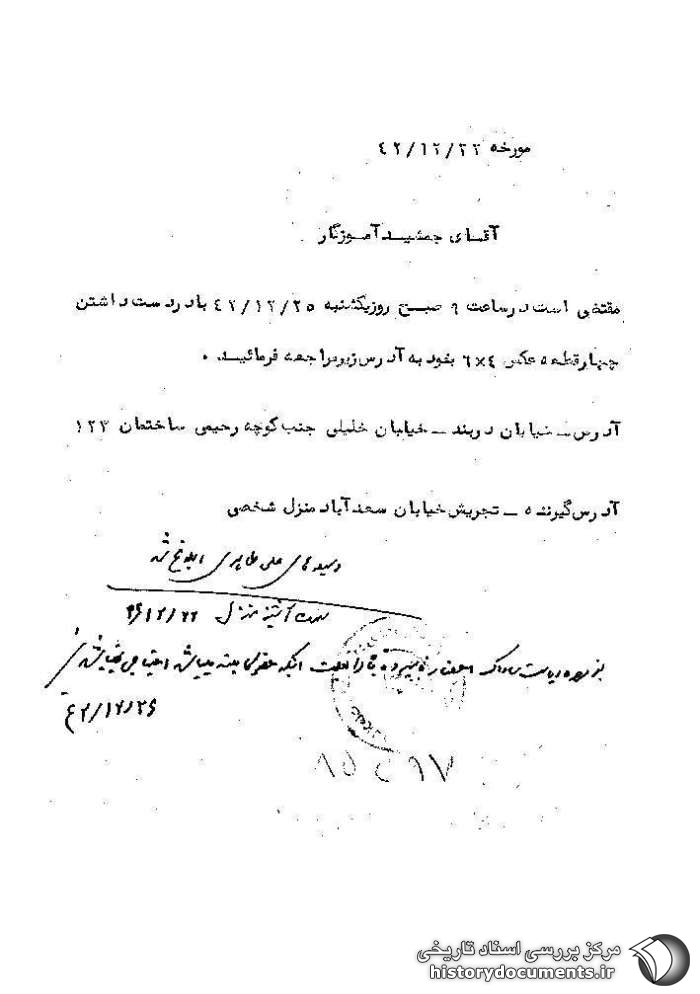 مورخه ۴۲/۱۲/۲۲
آقای جمشید آموزگار
مقتضی است در ساعت ۹ صبح روز یکشنبه ۴۲/۱۲/۲۵ با در دست داشتن
چهار قطعه عکس ۴×۶ بخود به آدرس زیر مراجعه فرمائید.
آدرس ــ خیابان دربند ــ خیابان خلیلی جنب کوچه رحیمی ساختمان ۱۲۳
آدرس گیرنده ــ تجریش خیابان سعدآباد منزل شخصی
بوسیله علی طاهری ابلاغ شد
منزل
ریاست ساواک اینکه احتیاجی
۴۲/۱۲/۲۶
۸۵۴۹۷
مرکز بررسی اسناد تاریخی
historydocuments.ir